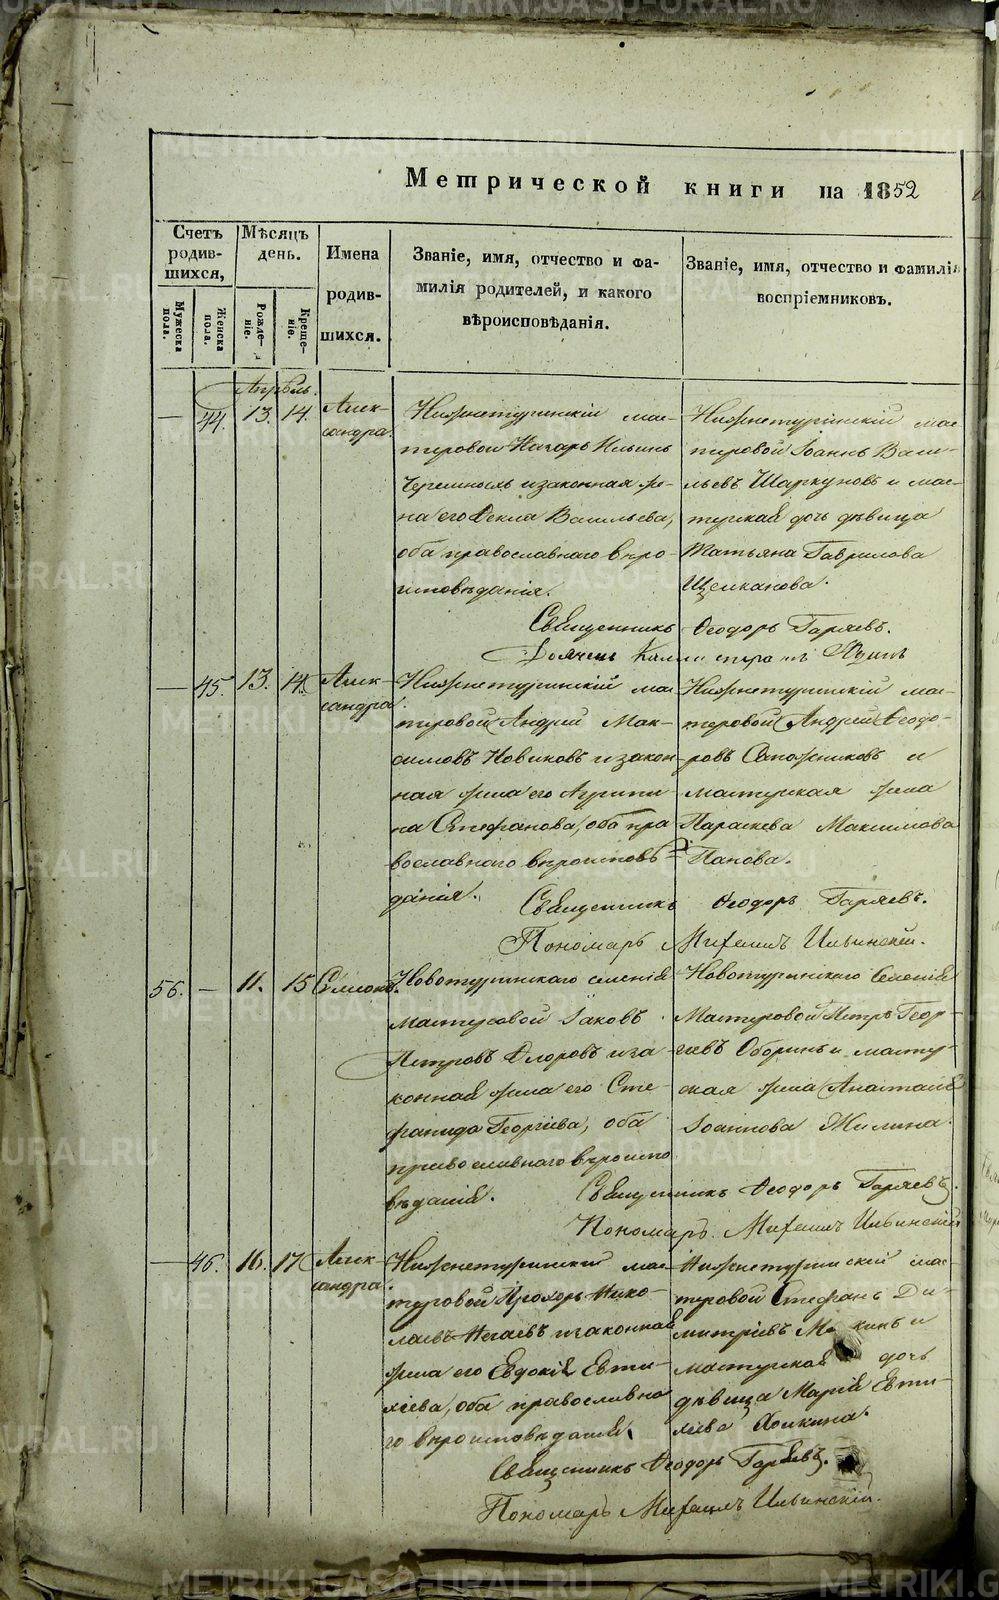 Метрической книги на 1852
Счетъ родив-шихся,
Мужеска пола.
Женска пола.
Мѣсяцъ день.
Рожде-ніе.
Креще-ніе.
Имена родив-шихся.
Званіе, имя, отчество и фа-
милія родителей, и какого
вѣроисповѣданія.
Званіе, имя, отчество и фамилія
воспріемниковъ.
Апрѣль.
— 44. 13. 14.
Алек-
сандра.
Нижнетуринскій мас-
теровой Назаръ Ильинъ
и законная же-
на его Ѳекла Васильева,
оба православнаго вѣро-
исповѣданія.
Нижнетуринскій мас-
теровой Іоаннъ Васи-
льевъ Шаркуновъ и мас-
терская дочь дѣвица
Татьяна Гаврилова
Щелканова.
Священникъ Ѳеодоръ Гаряевъ.
— 45. 13. 14.
Алек-
сандра.
Нижнетуринскій мас-
теровой Андрей Мак-
симовъ Новиковъ и закон-
ная жена его Агрипи-
на Стефанова, оба пра-
вославнаго вѣроисповѣ-
данія.
Нижнетуринскій мас-
теровой Андрей Ѳеодо-
ровъ Сапожниковъ и
мастерская жена
Параскева Максимова
Панова.
Священникъ Ѳеодоръ Гаряевъ.
Пономарь Михаилъ Ильинскій.
56. — 11. 15
Симеонъ.
Новотуринскаго селенія
Мастеровой Іаковъ
Петровъ Ѳлоровъ и за-
конная жена его Сте-
фанида Георгіева, оба
православнаго вѣроиспо
вѣданія.
Новотуринскаго Селенія
Мастеровой Петръ Геор-
гіевъ Оборинъ и мастер-
ская жена Анастасія
Іоаннова Жилина.
Священникъ Ѳеодоръ Гаряевъ.
Пономарь Михаилъ Ильинскій
— 46. 16. 17
Алек-
сандра.
Нижнетуринскій мас-
теровой Прохоръ Нико-
лаевъ и законная
жена его Евдокія Евти-
хіева, оба православна
го вѣроисповѣданія.
Нижнетуринскій мас-
теровой Стефанъ Ди-
митріевъ и
мастерская дочь
дѣвица Марія Евти-
хіева
Священникъ Ѳеодоръ Гаряевъ.
Пономарь Михаилъ Ильинскій.
METRIKI.GASO-URAL.RU